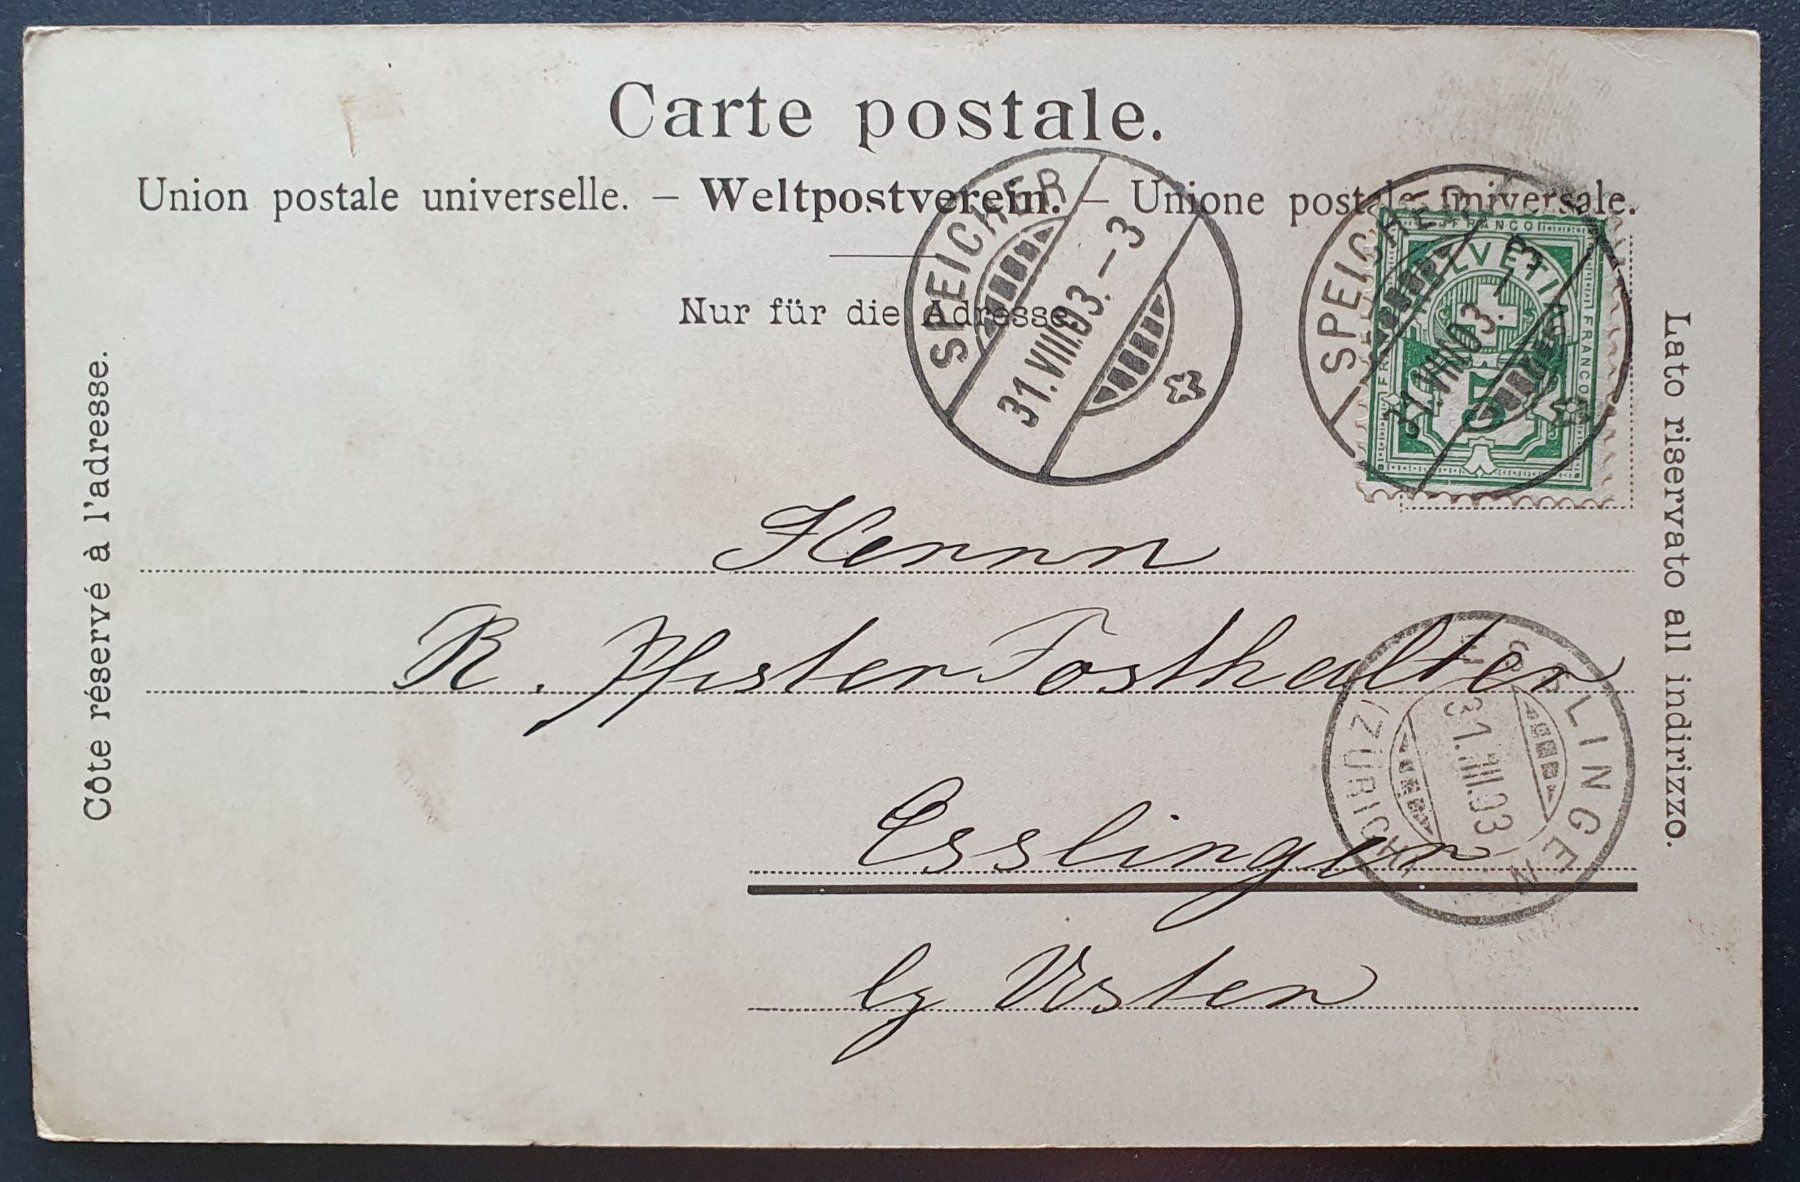 Carte postale.
Union postale universelle. – Weltpostverein. – Unione postale universale.
Nur für die Adresse.
Côte réservé à l'adresse.
Lato riservato all indirizzo.
SPEICHER
31.VIII.03.–3
SPEICHER
31.VIII.03.–3
FRANCO
HELVETIA
FRANCO
FRANCO
5
Herrn
R. Pfister Posthalter
Esslingen
bg Usten
ESSLINGEN
31.VIII.03
(ZÜRICH)